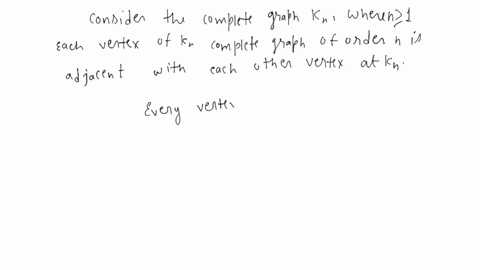 Consider the complete graph Kn, where n≥1
Each vertex of Kn complete graph of order n is
adjacent with each other vertex at Kn.
Every verte